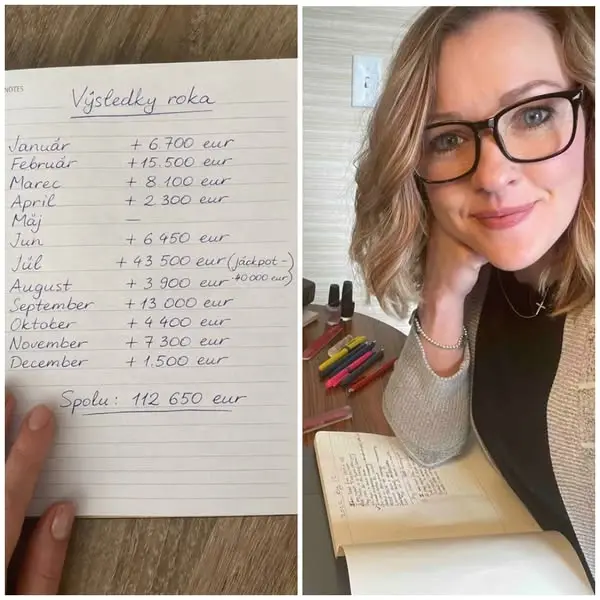 NOTES
Výsledky roka
Január + 6.700 eur
Február + 15.500 eur
Marec + 8.100 eur
April + 2 300 eur
Máj —
Jun + 6 450 eur
Júl + 43 500 eur (jáckpot -
40 000 eur)
August + 3 900 eur
September + 13 000 eur
Oktober + 4 400 eur
November + 7 300 eur
December + 1.500 eur
Spolu: 112 650 eur